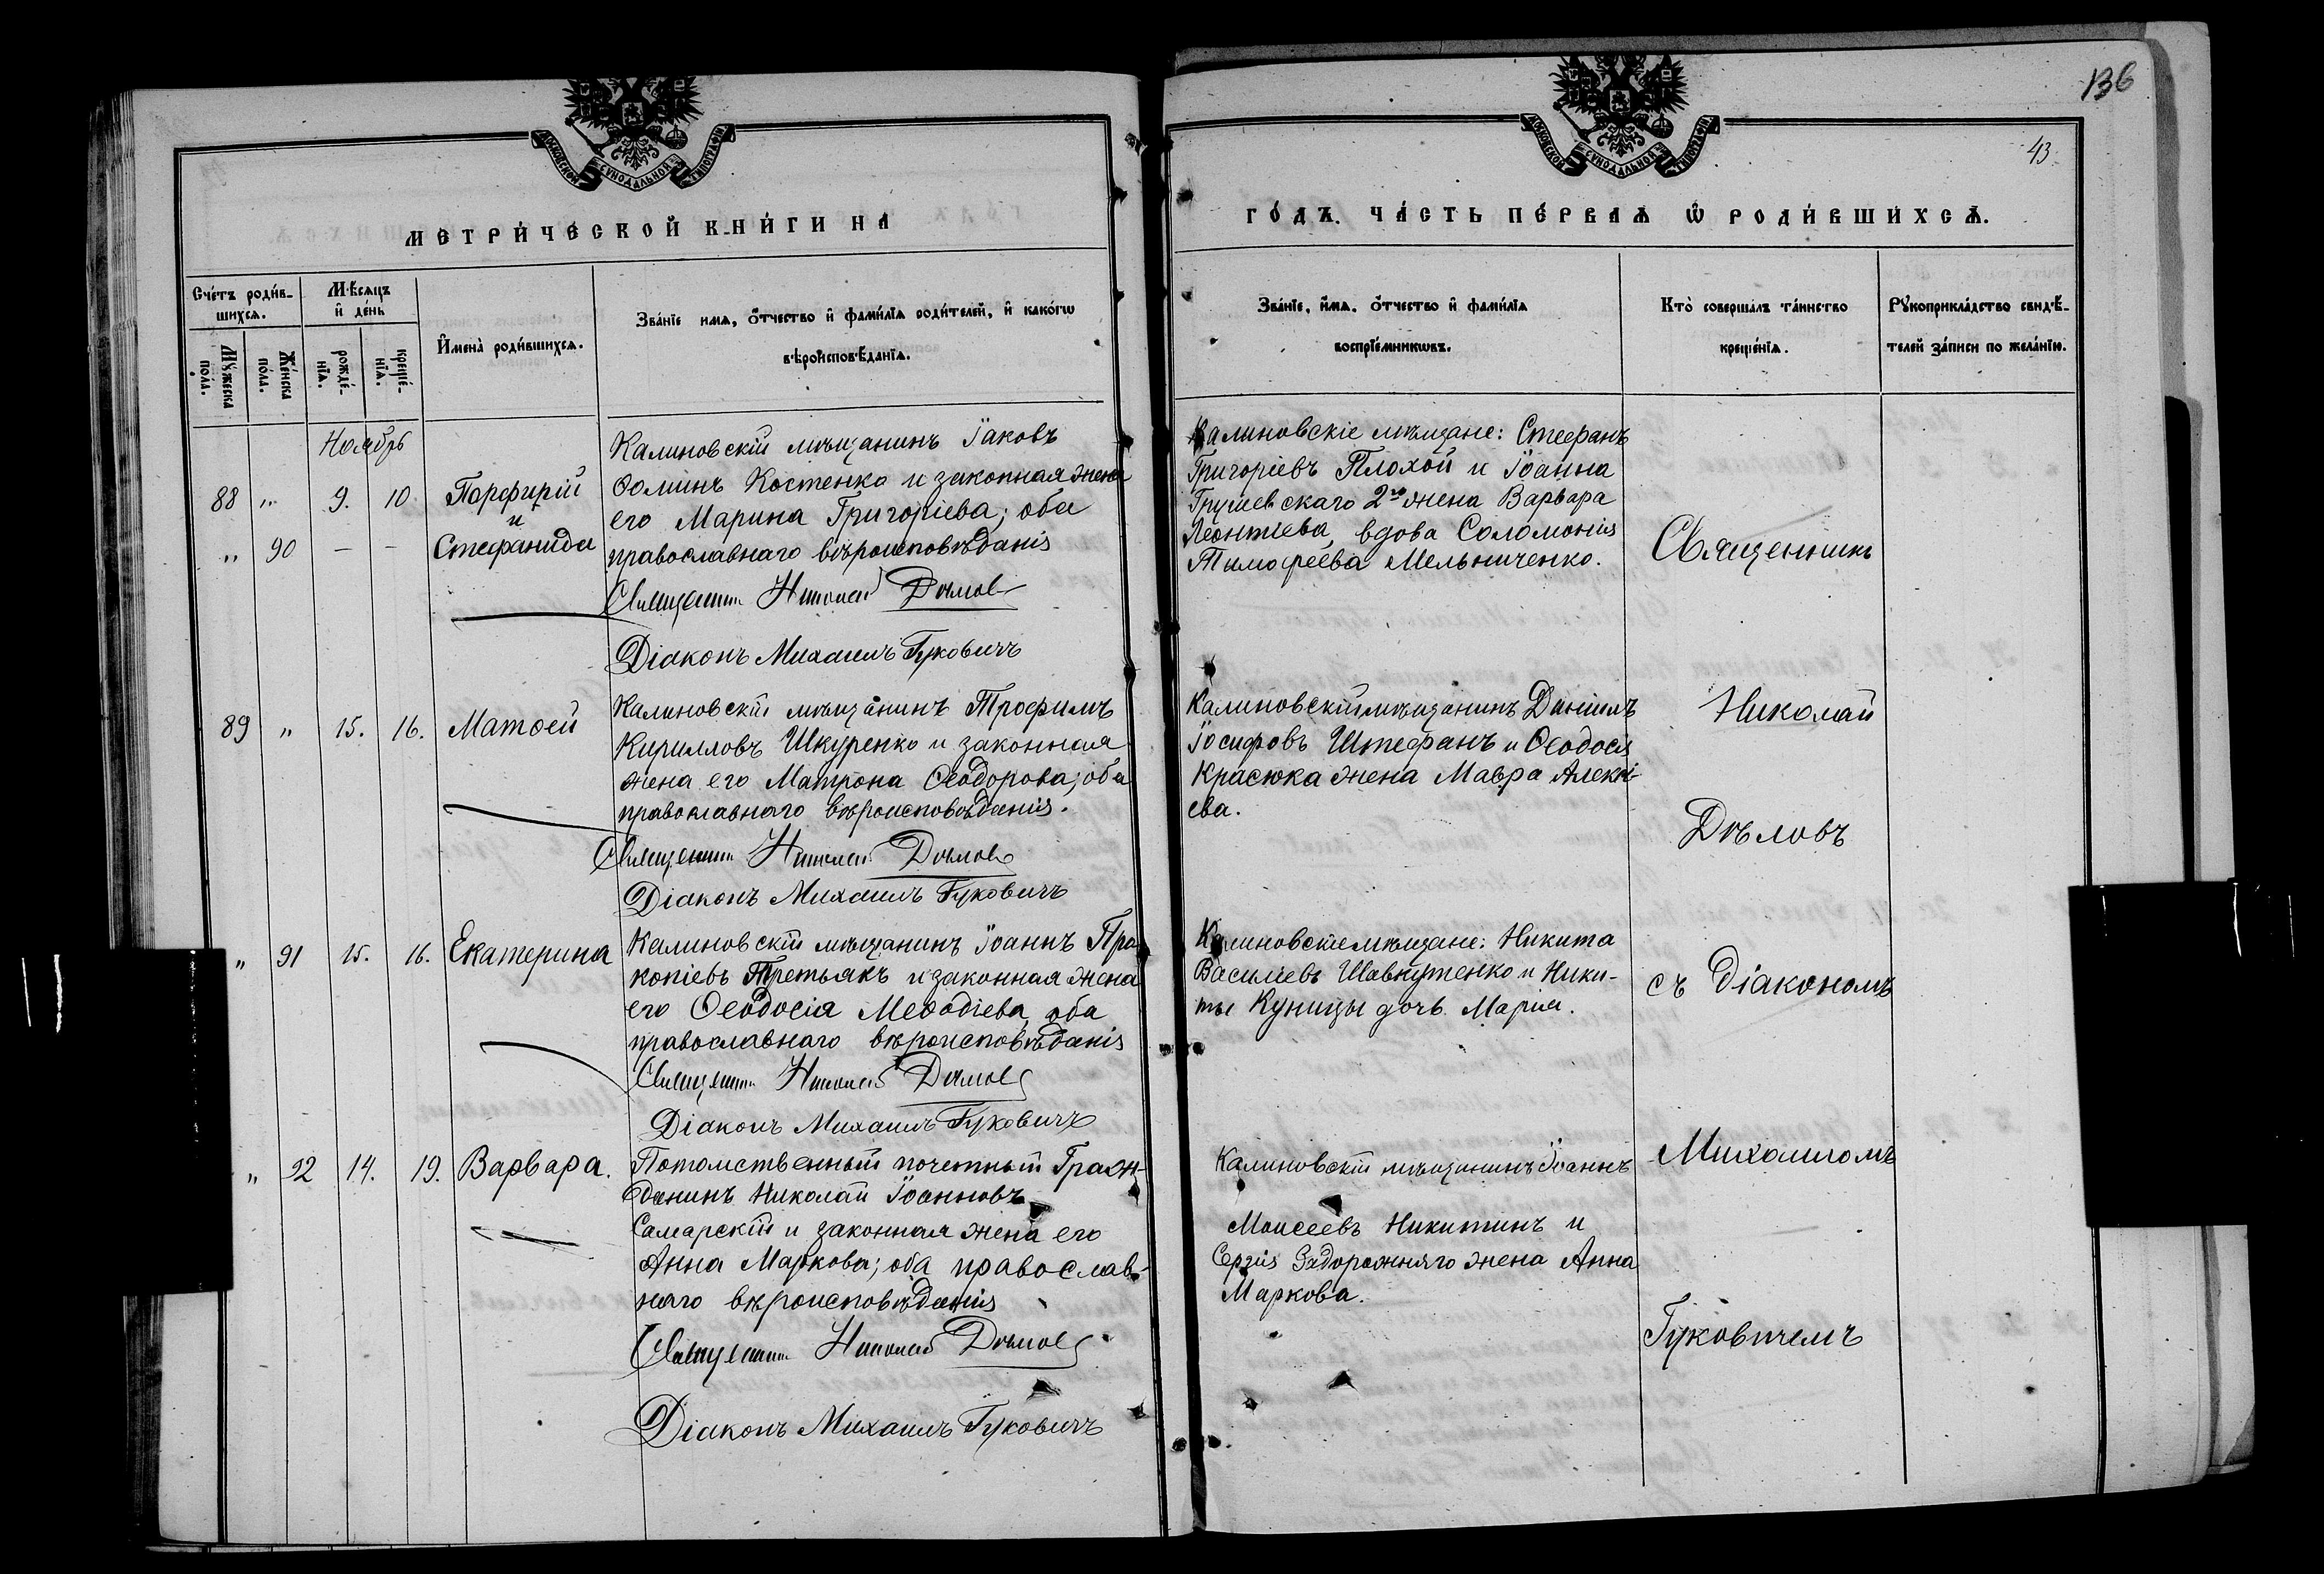 136
43
МОСКОВСКОЙ СѴНОДАЛЬНОЙ ТИПОГРАФІИ
МОСКОВСКОЙ СѴНОДАЛЬНОЙ ТИПОГРАФІИ
МЕТРИ́ЧЕСКОЙ КНИ́ГИ НА
ГО́ДЪ. ЧА́СТЬ ПЕ́РВАѦ Ѡ РОДИ́ВШИХСѦ.
Сче́тъ роди́в-
шихсѧ.
Мꙋ́жеска
по́ла.
Же́нска
по́ла.
Мѣ́сѧцъ
и҆ де́нь
рожде́-
нїѧ.
креще́-
нїѧ.
И҆мена̀ роди́вшихсѧ.
Зва́нїе имѧ, ѻ҆́тчество и҆ фами́лїѧ роди́телей, и҆ како́гѡ
вѣроисповѣ́данїѧ.
Зва́нїе, и҆́мѧ, ѻ҆́тчество и҆ фами́лїѧ
воспрїе́мникѡвъ.
Кто̀ соверша́лъ та́инство
креще́нїѧ.
Рꙋкоприкла́дство свидѣ́-
телей за́писи по жела́нїю.
Ноябрь
88 " 9. 10 Порфирій
и
" 90 — — Стефанида
Калиновскій мѣщанинъ Іаковъ
Ѳоминъ Костенко и законная жена
его Марина Григоріева; оба
православнаго вѣроисповѣданія
Священникъ Николай Дѣловъ
Діаконъ Михаилъ Гуковичъ
Калиновскіе мѣщане: Стефанъ
Григоріевъ Плохой и Іоанна
Грушевскаго 2го жена Варвара
Леонтіева, вдова Соломонія
Тимофеева Мельниченко.
Священникъ
89 " 15. 16. Матѳей
Калиновскій мѣщанинъ Трофимъ
Кирилловъ Шкуренко и законная
жена его Матрона Ѳеодорова; оба
православнаго вѣроисповѣданія.
Священникъ Николай Дѣловъ
Діаконъ Михаилъ Гуковичъ
Калиновскій мѣщанинъ Даніилъ
Іосифовъ Штефанъ и Ѳеодосія
Красюка жена Мавра Алексі-
ева.
Николай
Дѣловъ
" 91 15. 16. Екатерина
Калиновскій мѣщанинъ Іоаннъ Про
копіевъ Третьякъ и законная жена
его Ѳеодосія Меѳодіева, оба
православнаго вѣроисповѣданія
Священникъ Николай Дѣловъ
Діаконъ Михаилъ Гуковичъ
Калиновскіе мѣщане: Никита
Василіевъ Шавкутенко и Ники-
ты Куницы дочь Марія.
съ Діакономъ
" 92 14. 19. Варвара.
Потомственный почетный Граж-
данинъ Николай Іоанновъ
Самарскій и законная жена его
Анна Маркова; оба православ-
наго вѣроисповѣданія
Священникъ Николай Дѣловъ
Діаконъ Михаилъ Гуковичъ
Калиновскій мѣщанинъ Іоаннъ
Моисеевъ Никитинъ и
Сергія Задорожняго жена Анна
Маркова.
Михаиломъ
Гуковичемъ